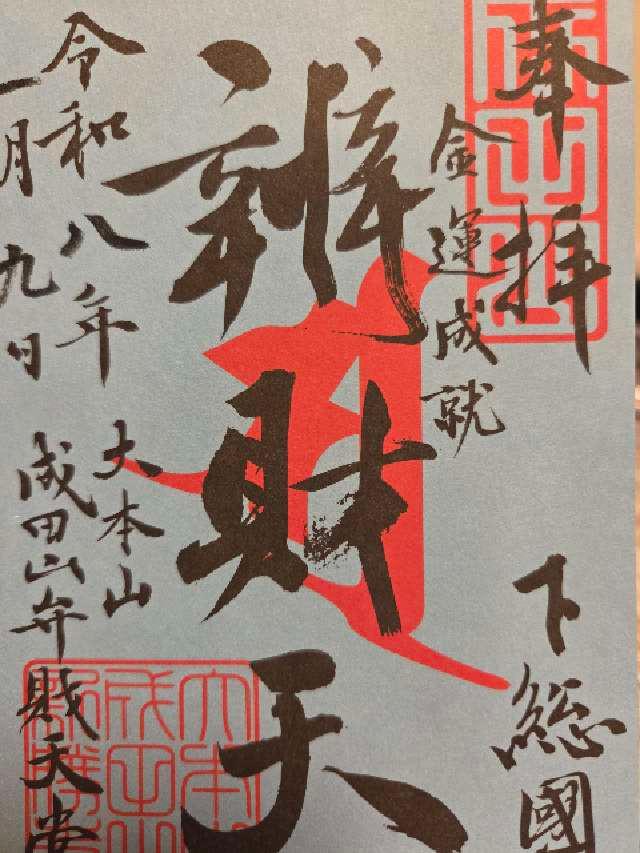 奉拝
下総國
金運成就
辨財天
令和八年
一月九日
大本山
成田山弁財天堂